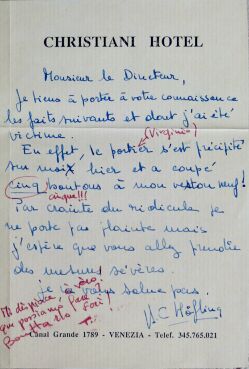 CHRISTIANI HOTEL
Monsieur le Directeur,
Je tiens à porter à votre connaissance
les faits suivants et dont j'ai été
victime.
(Virginio!)
En effet, le portier s'est précipité
sur moi hier et a coupé
cinq boutons à mon veston neuf!
cinque!!!
Par crainte du ridicule je
ne porte pas plainte mais
j'espère que vous allez prendre
des mesures sévères.
Je ne vous salue pas.
Mi dispiace,
che possiamo fare
Canal Grande 1789 - VENEZIA - Telef. 345.765.021